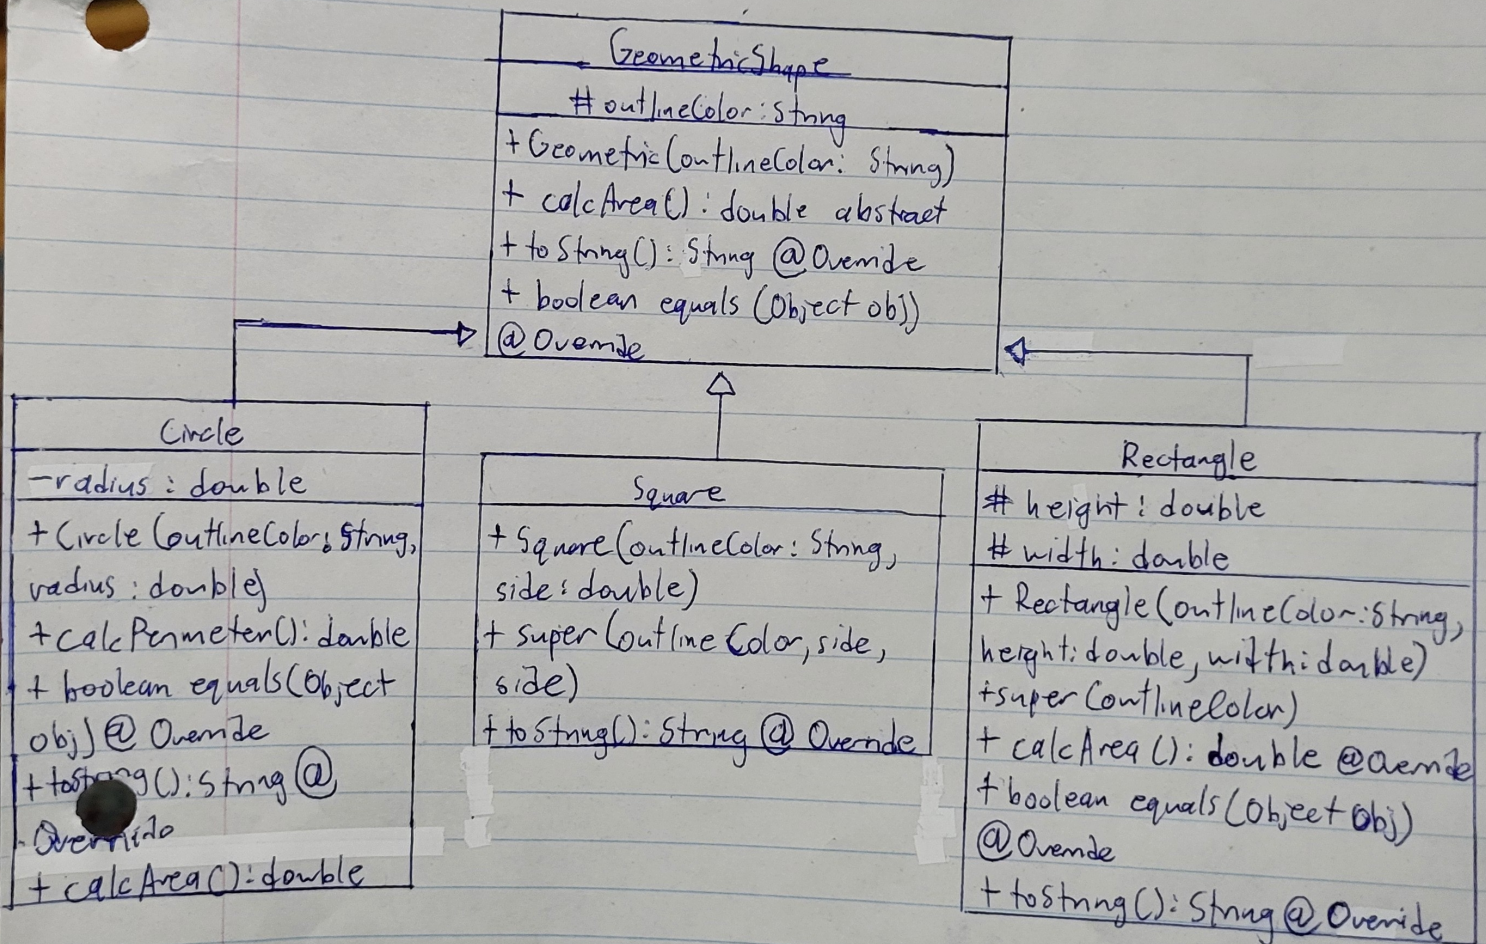 GeometricShape
# outlineColor: String
+ Geometric(outlineColor: String)
+ calcArea(): double abstract
+ toString(): String @Override
+ boolean equals(Object obj)
@Override
Circle
- radius: double
+ Circle(outlineColor: String,
radius: double)
+ calcPerimeter(): double
+ boolean equals(Object
obj) @Override
+ toString(): String @
Override
+ calcArea(): double
Square
+ Square(outlineColor: String,
side: double)
+ super(outlineColor, side,
side)
+ toString(): String @Override
Rectangle
# height: double
# width: double
+ Rectangle(outlineColor: String,
height: double, width: double)
+ super(outlineColor)
+ calcArea(): double @Override
+ boolean equals(Object obj)
@Override
+ toString(): String @Override